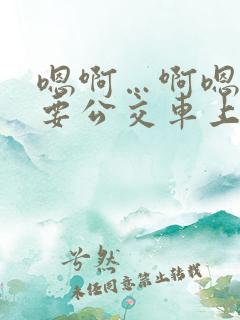 嗯啊…啊嗯
要公交车上
兮然
未经同意禁止转载